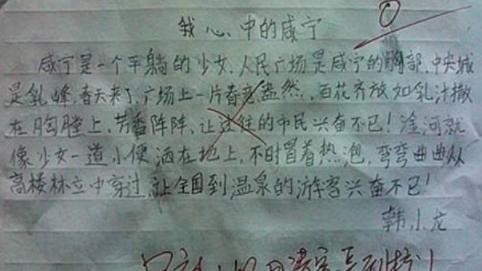 我心中的咸宁
0
咸宁是一个平躺的少女,人民广场是咸宁的胸部,中央城
是乳峰,春天来了,广场上一片春意盎然,百花齐放如乳汁撒
在胸膛上,芳香阵阵,让过往的市民兴奋不已!淦河就
像少女一道小便洒在地上,不时冒着热泡,弯弯曲曲从
高楼林立中穿过,让全国到温泉的游客兴奋不已!
韩小龙